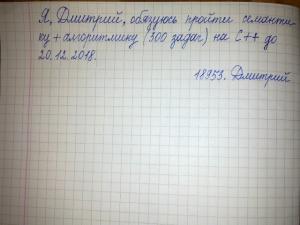 Я, Дмитрий, обязуюсь пройти семанти
ку + алгоритмику (300 задач) на C++ до
20.12.2018.
18953. Дмитрий